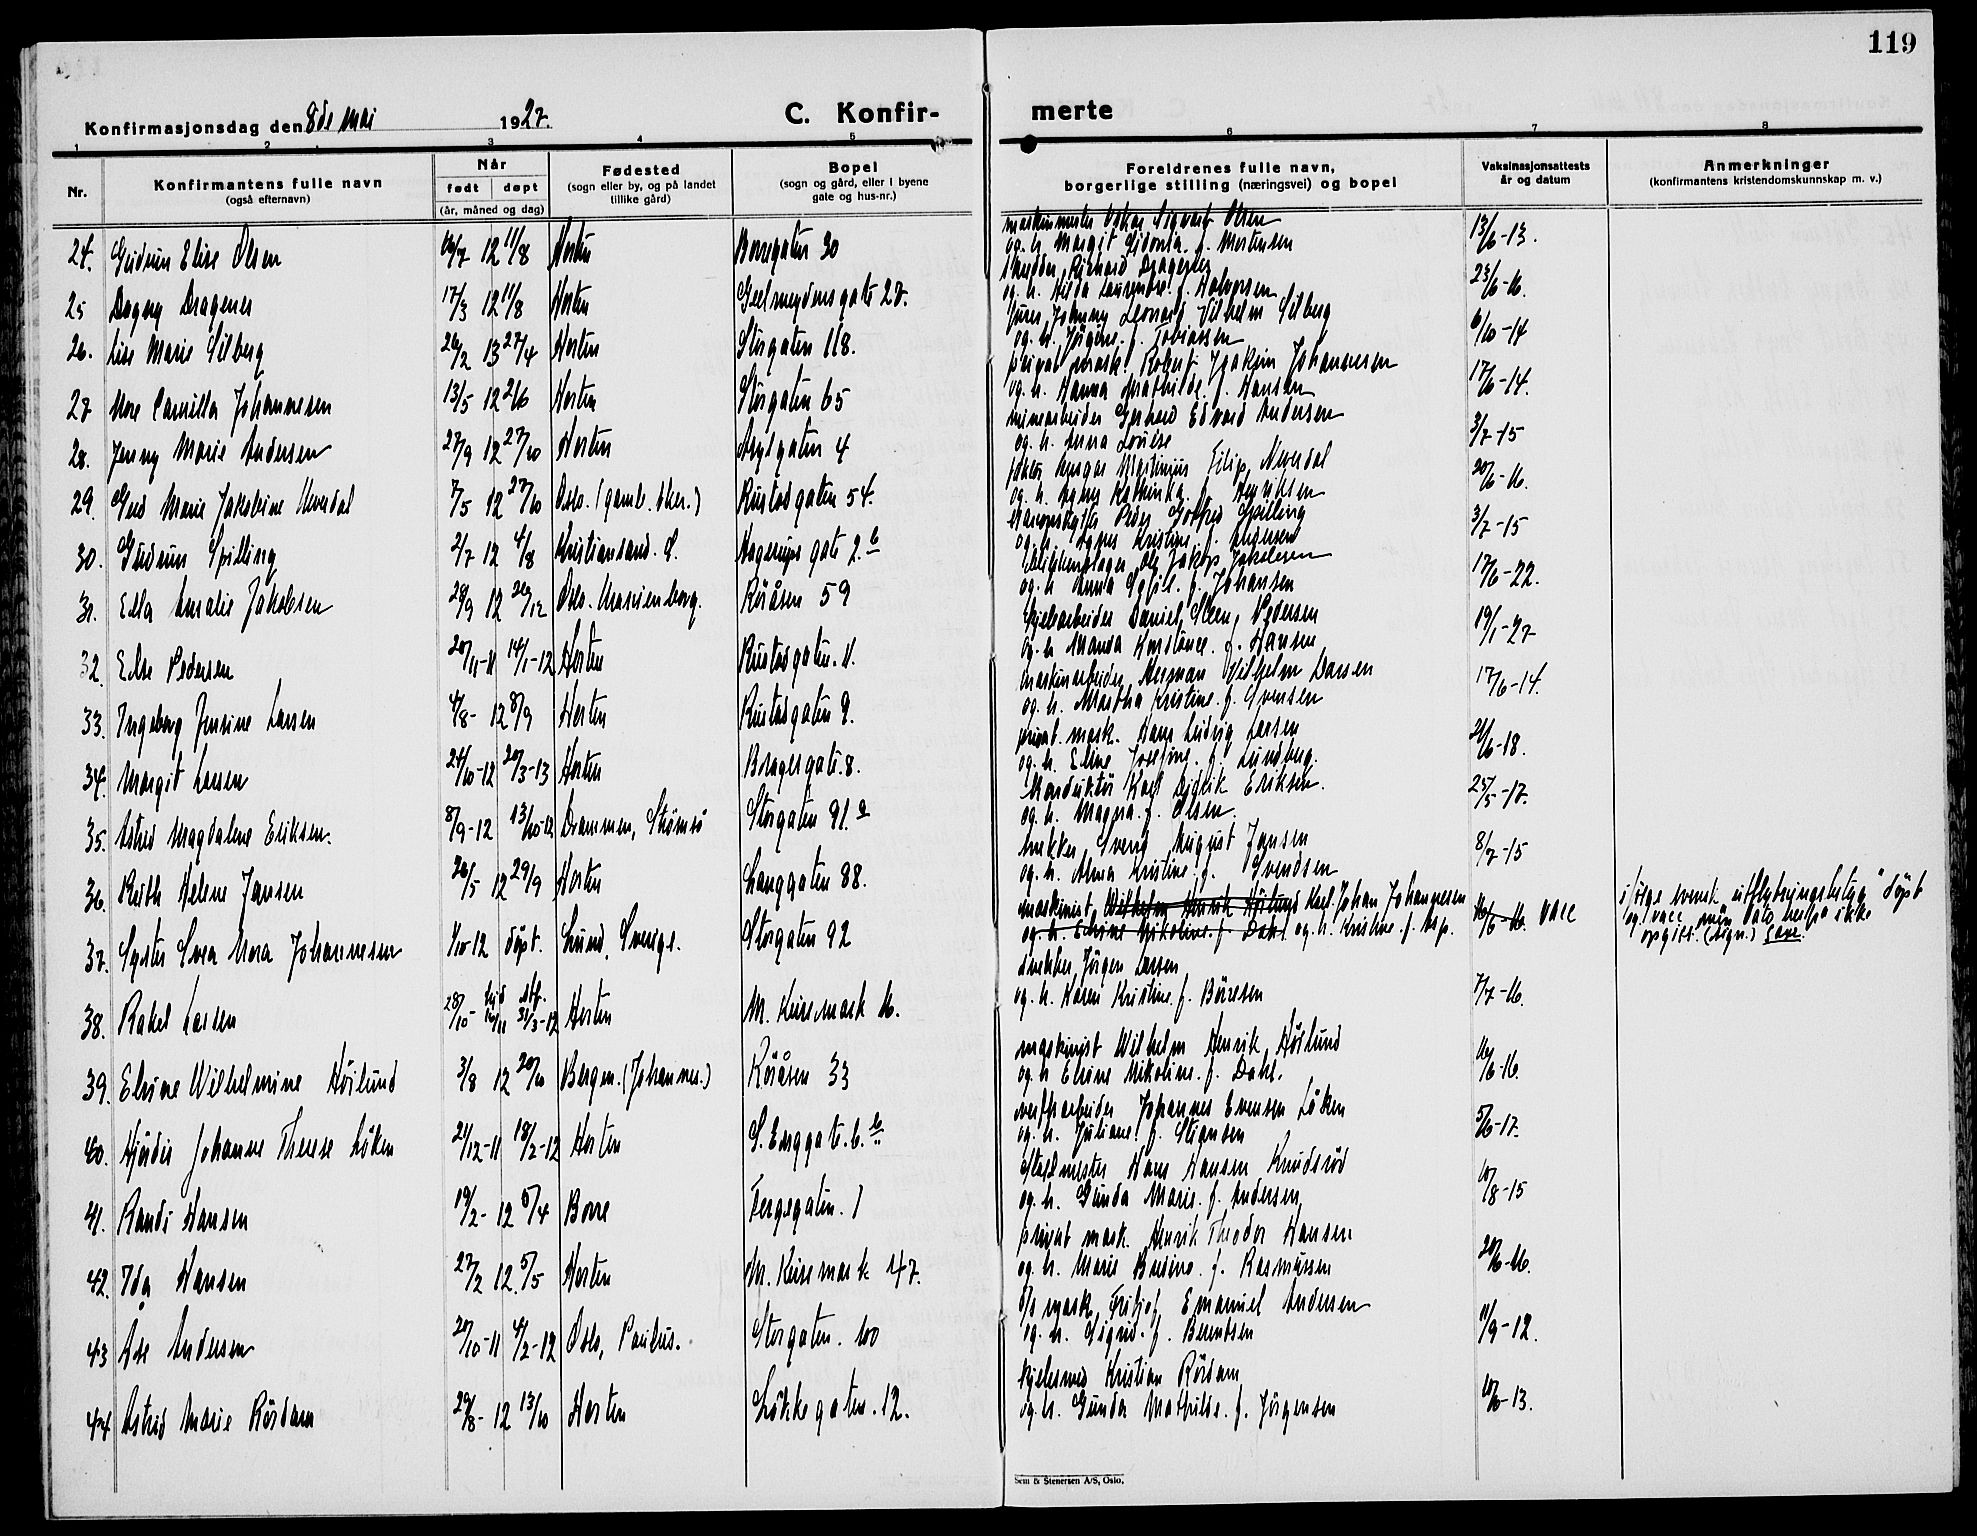 119
Konfirmasjonsdag den 8de mai 1927.
C. Konfir-
merte
1 2 3 4 5 6 7 8
Nr.
Konfirmantens fulle navn
(også efternavn)
Når
født døpt
(år, måned og dag)
Fødested
(sogn eller by, og på landet
tillike gård)
Bopel
(sogn og gård, eller i byene
gate og hus-nr.)
Foreldrenes fulle navn,
borgerlige stilling (næringsvei) og bopel
Vaksinasjonsattests
år og datum
Anmerkninger
(konfirmantens kristendomskunnskap m. v.)
24. Gudrun Elise Olsen 12 11/8 Horten Borregaten 30
maskinmester Oskar Sigvart Olsen 13/6-13.
og h. Margit Sidonia f. Mortensen
25 Dagny Dragenes 17/3 12 11/8 Horten Geelmeydensgate 27.
Rikhard Dragenes 23/6-16.
og h. Hilda Laurentze f. Halvorsen
26. Lise Marie Silberg 26/2 13 27/4 Horten Storgaten 118.
Johnny Leonard Vilhelm Silberg 6/10-14
og h. Jörgine f. Tobiassen
27 More Camilla Johannesen 13/5 12 2/6 Horten Storgaten 65
privat mask. Robert Joakim Johannesen 17/6-14.
og h. Hanna Mathilde f. Hansen
28. Jenny Marie Andersen 27/9 12 27/10 Horten Asylgaten 4
minearbeider Gerhard Edvard Andersen 3/7-15
og h. Anna Lovise
29. Gerd Marie Jakobine Neverdal 7/5 12 27/10 Oslo. (gamb. Aker.) Rustadgaten 54.
Ansgar Martinius Filip Neverdal 20/6-16.
og h. Agnes Kathinka f. Henriksen
30. Gudrun Spilling 2/7 12 4/8 Kristiansand. S. Hagerups gate 2.b
Peder Gotfred Spilling 3/7-15
og h. Agnes Kristine f. Andersen
31. Edla Amalie Jakobsen 28/9 12 26/12 Oslo. Marienborg. Röråsen 59
Blikkenslager Ole Jakop Jakobsen 17/6-22.
og h Anna Sofie f. Johansen
32. Else Pedersen 20/11-11 14/1-12 Horten Rustadgaten. 11.
Kjelearbeider Daniel Steen Pedersen 19/1-27
og h Manda Konstance f. Hansen
33. Ingeborg Jensine Larsen 4/8- 12 8/9 Horten Rustadgaten 9.
Maskinarbeider Herman Vilhelm Larsen 17/6-14.
og h. Martha Kristine f. Svensen
34. Margit Larsen 24/10-12 20/3-13 Horten Bragesgate. 8.
privat. mask. Hans Ludvig Larsen 24/6-18.
og h. Eline Josefine f. Lundberg.
35. Astrid Magdalene Eriksen. 8/9-12 13/10-12 Drammen, Strømsø Storgaten 91.a
Konduktör Karl Didrik Eriksen. 25/5-17.
og h. Magna f. Olsen.
36. Ruth Helene Jansen 26/5 12 29/9 Horten Langgaten 88.
snekker Sverg August Jansen 8/7-15
og h. Alma Kristine f. Svendsen
37. Syster Svea Nora Johannesen 1/10-12 döpt. Lund, Sverige. Storgaten 92
maskinist Wilhelm Henrik Höilund Karl Johan Johannesen 16/6-16. vacc
og h. Elsine Nikoline f. Dahl og h. Kristine f. Asp.
ifölge svensk utflytningsbetyg "döpt
og vacc." men dato herpå ikke
opgitt. (sign.)
38. Rakel Larsen 28/10- 31/3-12 Horten M. Keisemark 16.
snekker Jörgen Larsen 7/7-16.
og h. Karen Kristine f. Börresen
39. Elsine Wilhelmine Höilund 3/8 12 20/10 Bergen. (Johannes.) Röråsen 33
maskinist Wilhelm Henrik Höilund 16/6-16.
og h Elsine Nikoline f. Dahl.
40. Hjördis Johanne Therese Löken 21/12-11 18/2-12 Horten S. Enggate. 6.b
verftsarbeider Johannes Evensen Löken 5/6-17.
og h. Juliane f. Stiansen
41. Randi Hansen 19/2- 12 5/4 Borre Fergegaten. 1
Hans Hansen Knudsröd 10/8-15
og h. Gunda Marie f. Andersen
42. Ida Hansen 27/2 12. 5/5 Horten M. Keisemark 47.
privat mask. Henrik Theodor Hansen 20/6-16.
og h. Marie Bersine f. Rasmussen
43 Åse Andersen 20/10-11 4/2-12 Oslo, Paulus. Storgaten. 100
mask. Fritjof Emanuel Andersen 11/9-12.
og h. Sigrid f. Berentsen
44 Astrid Marie Rördam 29/8- 12 13/10 Horten Lökkegaten. 12.
Kjelesmed Kristian Rördam 10/6-13.
og h. Gunda Mathilde f. Jörgensen
Sem & Stenersen A/S, Oslo.